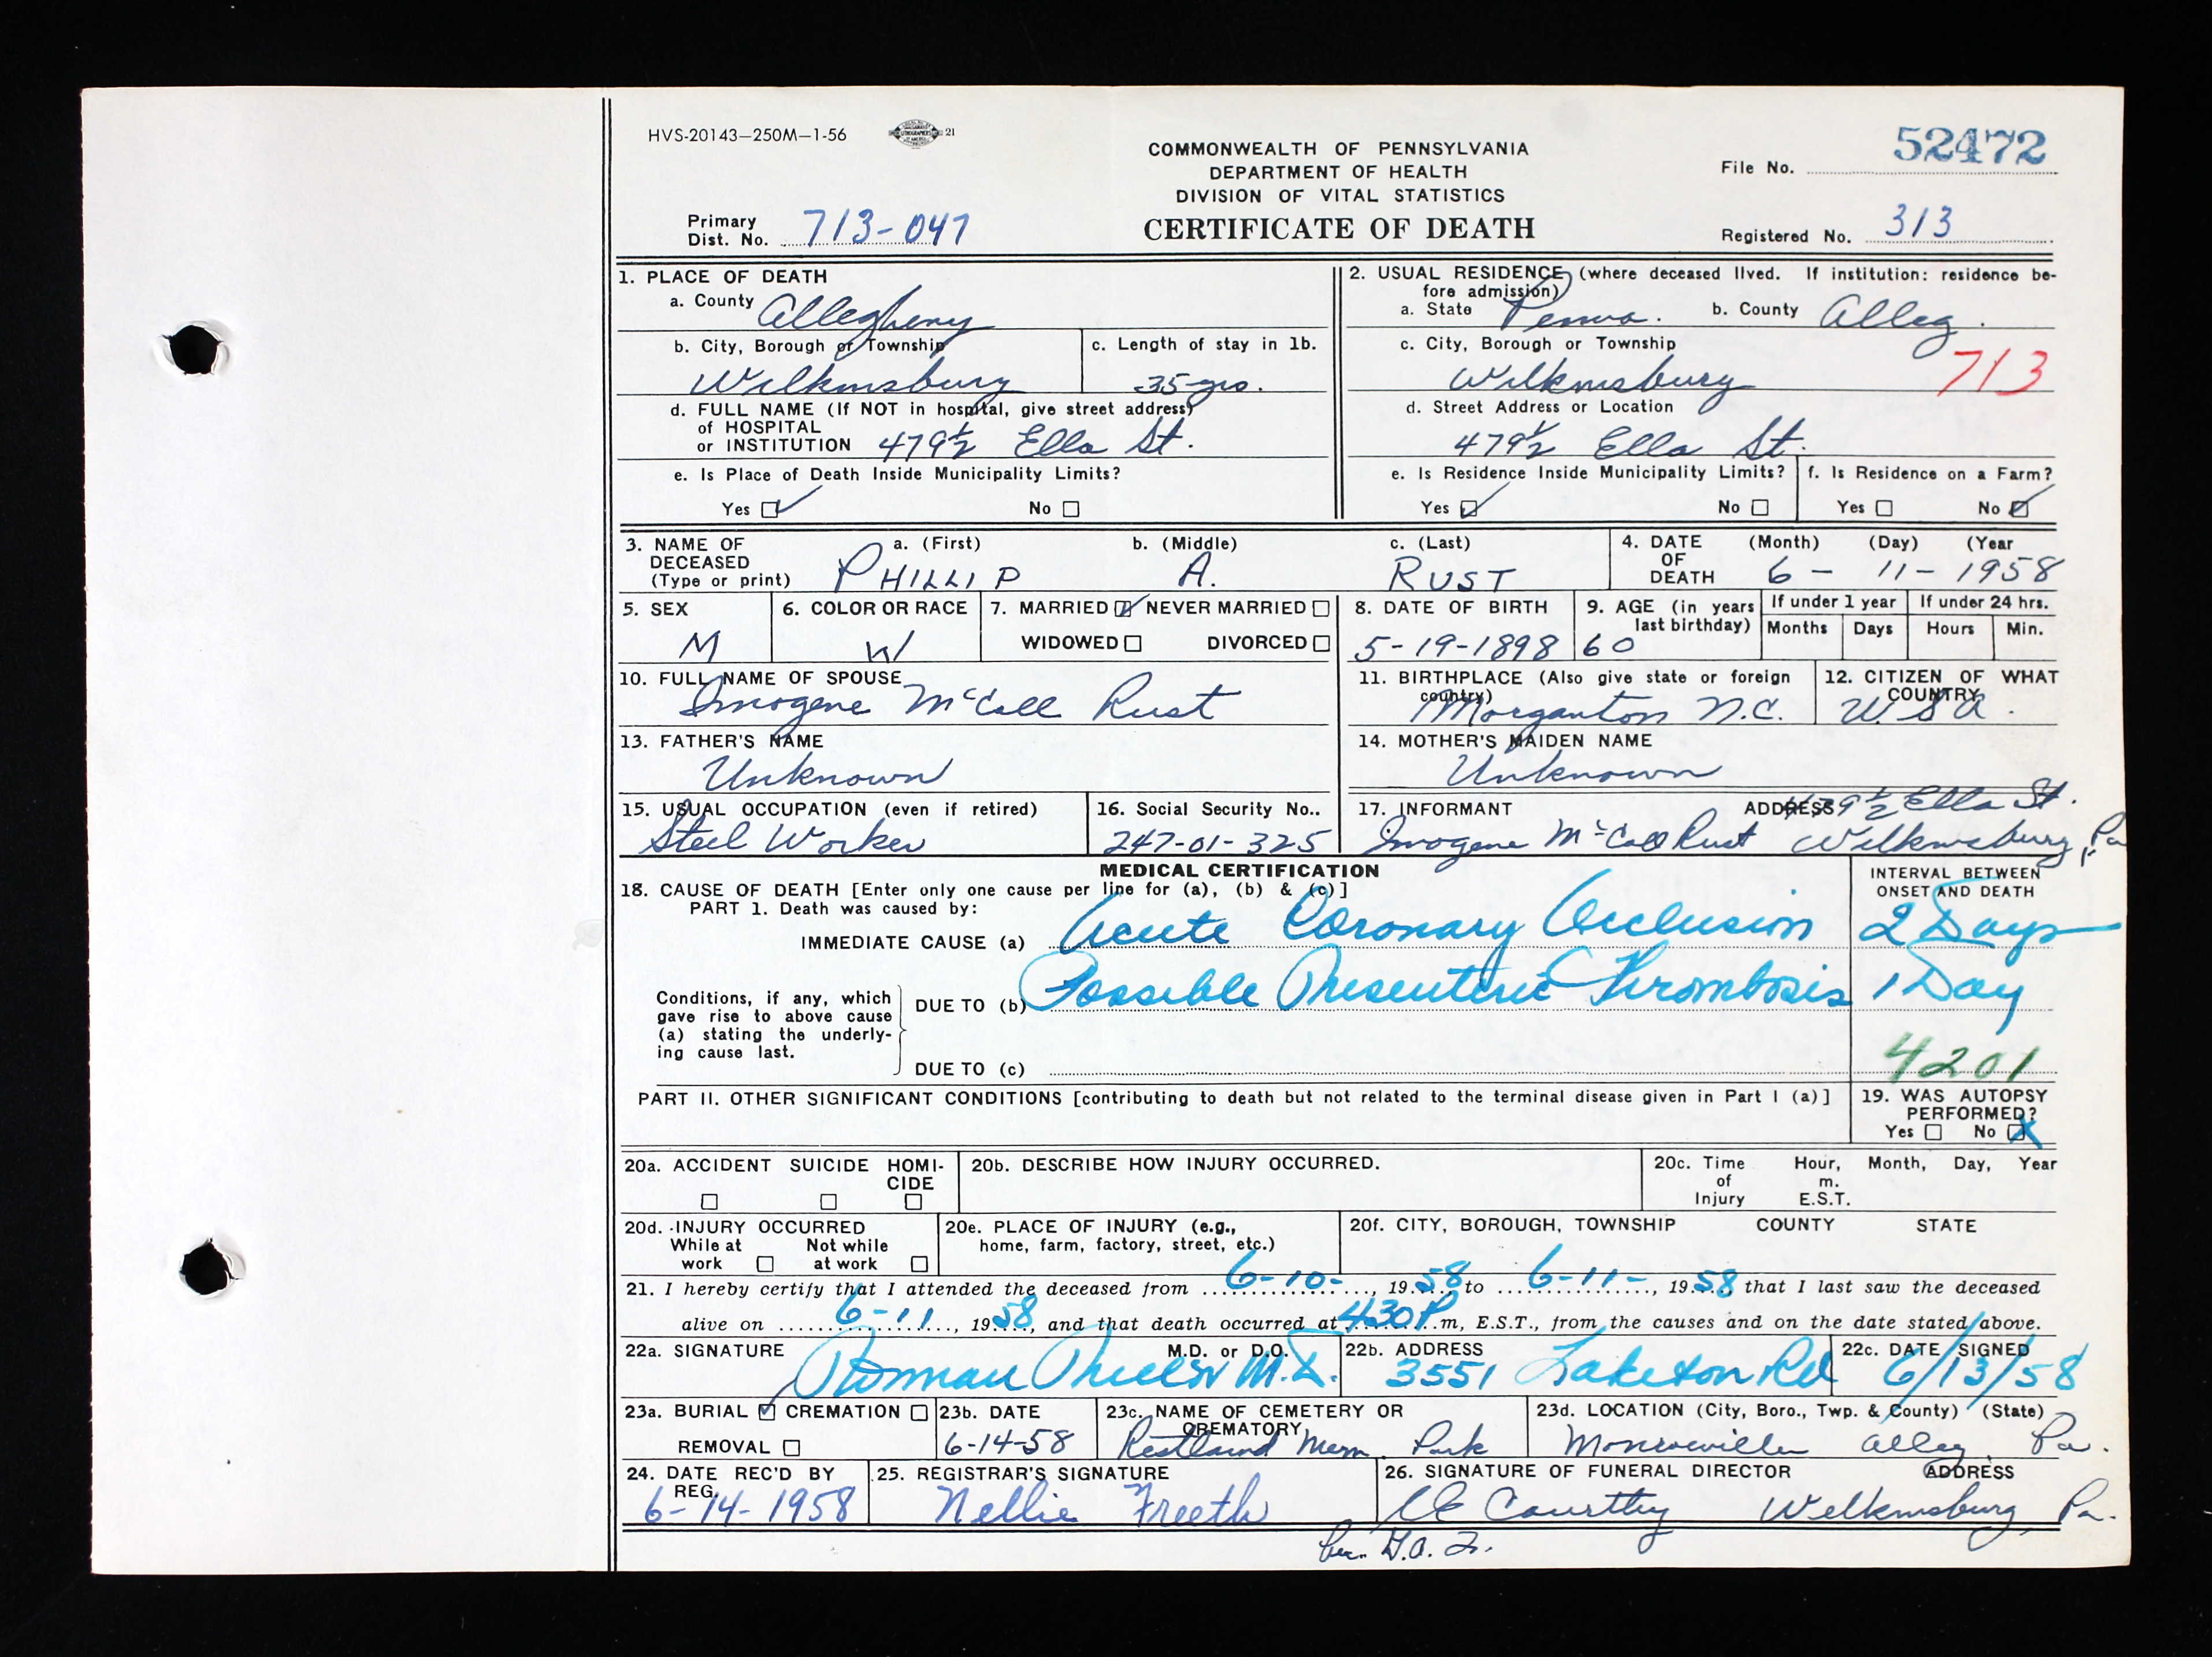 HVS-20143—250M—1-56 21
COMMONWEALTH OF PENNSYLVANIA
DEPARTMENT OF HEALTH
DIVISION OF VITAL STATISTICS
CERTIFICATE OF DEATH
File No. 52472
Primary
Dist. No. 713-047
Registered No. 313
1. PLACE OF DEATH
a. County Allegheny
b. City, Borough or Township
Wilkinsburg
c. Length of stay in 1b.
35 yrs.
d. FULL NAME (If NOT in hospital, give street address)
of HOSPITAL
or INSTITUTION 479½ Ella St.
e. Is Place of Death Inside Municipality Limits?
Yes No
2. USUAL RESIDENCE (where deceased lived. If institution: residence be-
fore admission)
a. State Penna. b. County Alleg.
c. City, Borough or Township
Wilkinsburg 713
d. Street Address or Location
479½ Ella St.
e. Is Residence Inside Municipality Limits? f. Is Residence on a Farm?
Yes No Yes No
3. NAME OF
DECEASED
(Type or print)
a. (First) b. (Middle) c. (Last)
PHILLIP A. RUST
4. DATE (Month) (Day) (Year
OF
DEATH 6 - 11 - 1958
5. SEX
M
6. COLOR OR RACE
W
7. MARRIED NEVER MARRIED
WIDOWED DIVORCED
8. DATE OF BIRTH
5-19-1898
9. AGE (in years
last birthday)
60
If under 1 year If under 24 hrs.
Months Days Hours Min.
10. FULL NAME OF SPOUSE
Imogene McCall Rust
11. BIRTHPLACE (Also give state or foreign
country)
Morganton N.C.
12. CITIZEN OF WHAT
COUNTRY
U.S.A.
13. FATHER'S NAME
Unknown
14. MOTHER'S MAIDEN NAME
Unknown
15. USUAL OCCUPATION (even if retired)
Steel Worker
16. Social Security No..
247-01-325
17. INFORMANT ADDRESS 479½ Ella St.
Imogene McCall Rust Wilkinsburg, Pa
MEDICAL CERTIFICATION
18. CAUSE OF DEATH [Enter only one cause per line for (a), (b) & (c)]
PART 1. Death was caused by:
INTERVAL BETWEEN
ONSET AND DEATH
IMMEDIATE CAUSE (a) Acute Coronary Occlusion 2 Days
Conditions, if any, which
gave rise to above cause
(a) stating the underly-
ing cause last.
DUE TO (b) Possible Mesenteric Thrombosis 1 Day
DUE TO (c)
4201
PART II. OTHER SIGNIFICANT CONDITIONS [contributing to death but not related to the terminal disease given in Part I (a)]
19. WAS AUTOPSY
PERFORMED?
Yes No X
20a. ACCIDENT SUICIDE HOMI-
CIDE
20b. DESCRIBE HOW INJURY OCCURRED.
20c. Time Hour, Month, Day, Year
of m.
Injury E.S.T.
20d. INJURY OCCURRED
While at Not while
work at work
20e. PLACE OF INJURY (e.g.,
home, farm, factory, street, etc.)
20f. CITY, BOROUGH, TOWNSHIP COUNTY STATE
21. I hereby certify that I attended the deceased from 6-10-, 1958 to 6-11-, 1958, that I last saw the deceased
alive on 6-11, 1958, and that death occurred at 430 P.m, E.S.T., from the causes and on the date stated above.
22a. SIGNATURE M.D. or D.O.
M.D.
22b. ADDRESS
3551 Laketon Rd
22c. DATE SIGNED
6/13/58
23a. BURIAL CREMATION
REMOVAL
23b. DATE
6-14-58
23c. NAME OF CEMETERY OR
CREMATORY
Restland Mem. Park
23d. LOCATION (City, Boro., Twp. & County) (State)
Monroeville Alleg. Pa.
24. DATE REC'D BY
REG.
6-14-1958
25. REGISTRAR'S SIGNATURE
Nellie Freeth
26. SIGNATURE OF FUNERAL DIRECTOR ADDRESS
Wilkinsburg, Pa.